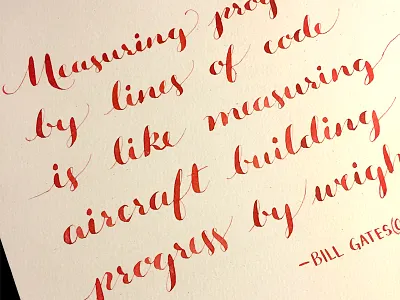 Measuring prog
by lines of code
is like measuring
aircraft building
progress by weigh
—BILL GATES(